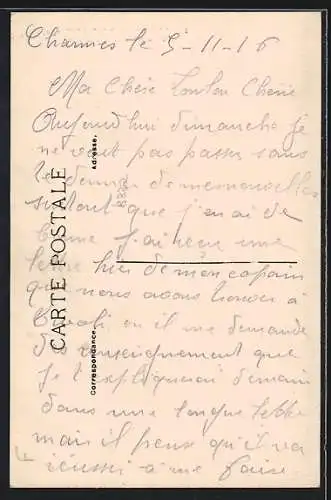 Charmes le 5-11-16
Ma Chère Loulou Chérie
Aujourd'hui dimanche je
ne veut pas passer sans
te donner de mes nouvelles
surtout que j'en ai de
bonne j'ai reçu une
lettre hier de mon copain
que nous avons trouver à
où il me demande
des renseignement que
je t'expliquerai demain
dans une longue lettre
mais il pense qu'il va
réussi à me faire
CARTE POSTALE
Adresse.
Correspondance.